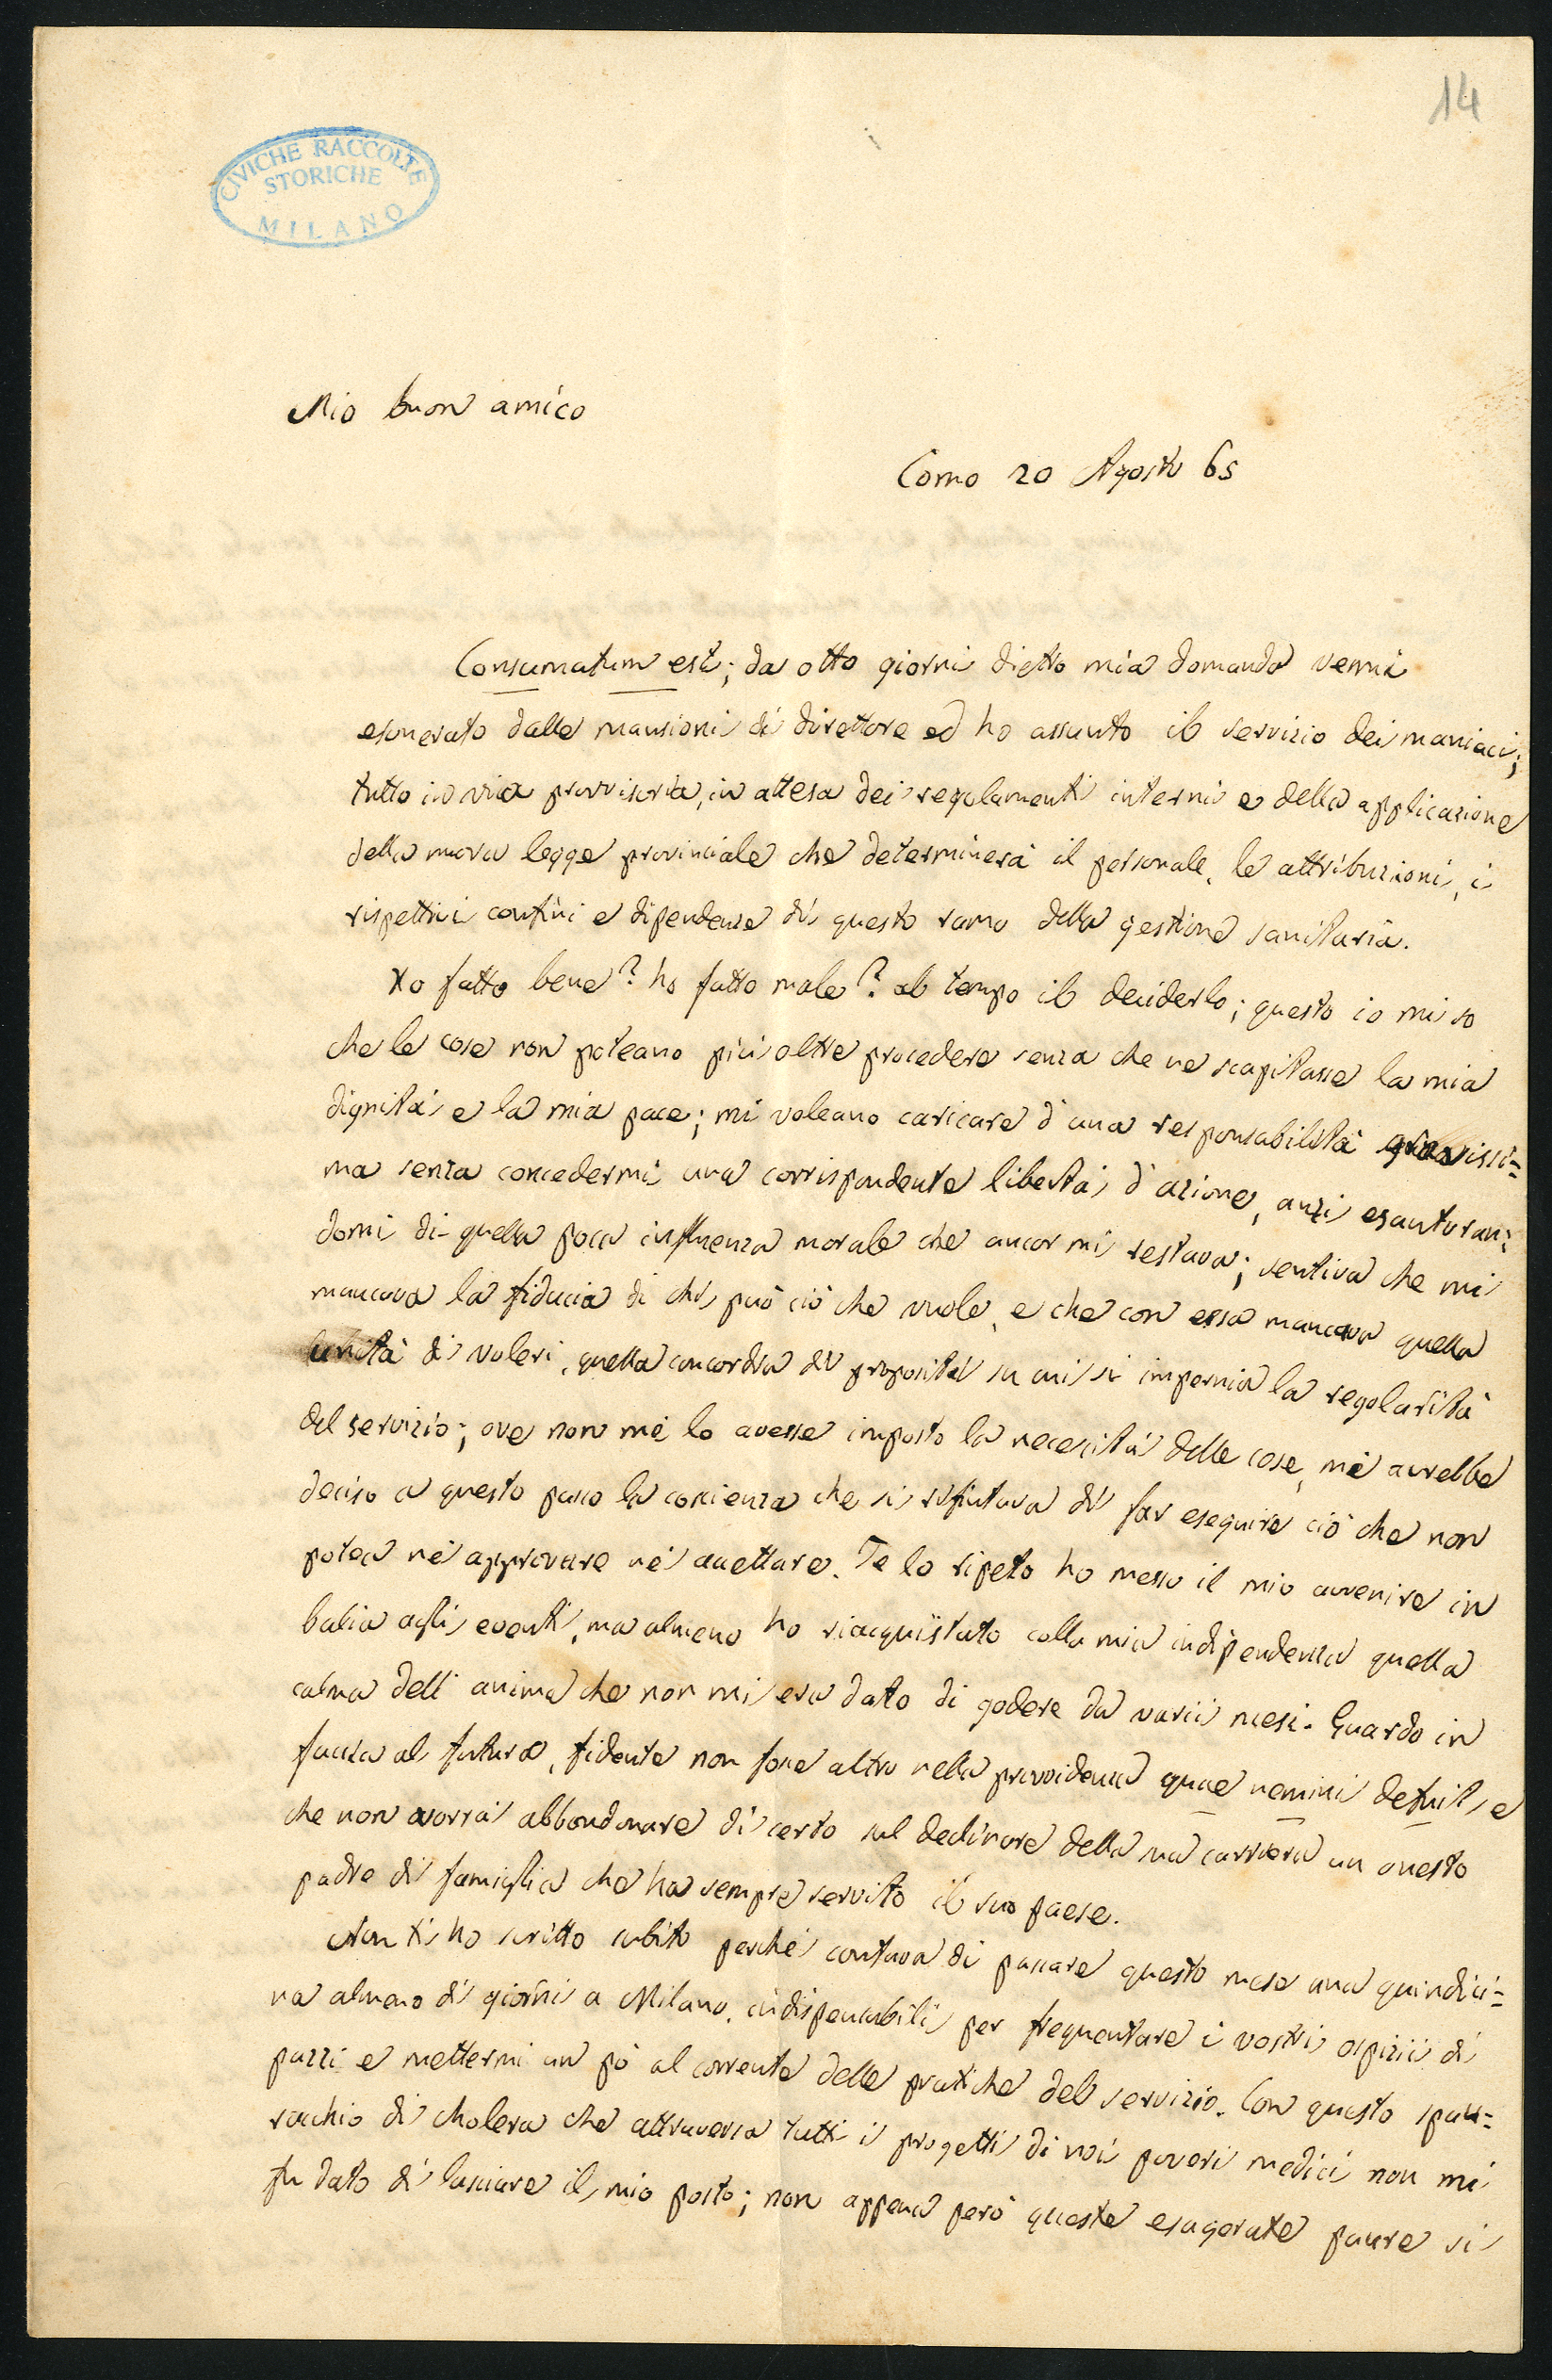 14
CIVICHE RACCOLTE
STORICHE
MILANO
Mio buon amico
Como 20 Agosto 65
Consumatum est; da otto giorni dietro mia domanda venni
esonerato dalle mansioni di direttore ed ho assunto il servizio dei maniaci;
tutto in via provvisoria, in attesa dei regolamenti interni e della applicazione
della nuova legge provinciale che determinerà il personale, le attribuzioni, i
rispettivi confini e dipendenze di questo ramo della gestione sanitaria.
Ho fatto bene? ho fatto male? al tempo il deciderlo; questo io mi so
che le cose non poteano più oltre procedere senza che ne scapitasse la mia
dignità e la mia pace; mi voleano caricare d'una responsabilità gravissi=
ma senza concedermi una corrispondente libertà d'azione, anzi esautoran=
domi di quella poca influenza morale che ancor mi restava; sentiva che mi
mancava la fiducia di chi può ciò che vuole, e che con essa mancava quella
unità di voleri, quella concordia di propositi su cui si impernia la regolarità
del servizio; ove non me lo avesse imposto la necessità delle cose, mi avrebbe
deciso a questo passo la coscienza che si rifiutava di far eseguire ciò che non
potea nè approvare nè accettare. Te lo ripeto ho messo il mio avvenire in
balia agli eventi, ma almeno ho riacquistato colla mia indipendenza quella
calma dell'anima che non mi era dato di godere da varii mesi. Guardo in
faccia al futuro, fidente non fosse altro nella provvidenza quae nemini defuit, e
che non vorrà abbandonare di certo sul declinare della sua carriera un onesto
padre di famiglia che ha sempre servito il suo paese.
Non ti ho scritto subito perchè contava di passare questo mese una quindici=
na almeno di giorni a Milano, indispensabili per frequentare i vostri ospizii di
pazzi e mettermi un pò al corrente delle pratiche del servizio. Con questo spau=
racchio di cholera che attraversa tutti i progetti di noi poveri medici non mi
fu dato di lasciare il mio posto; non appena però queste esagerate paure si